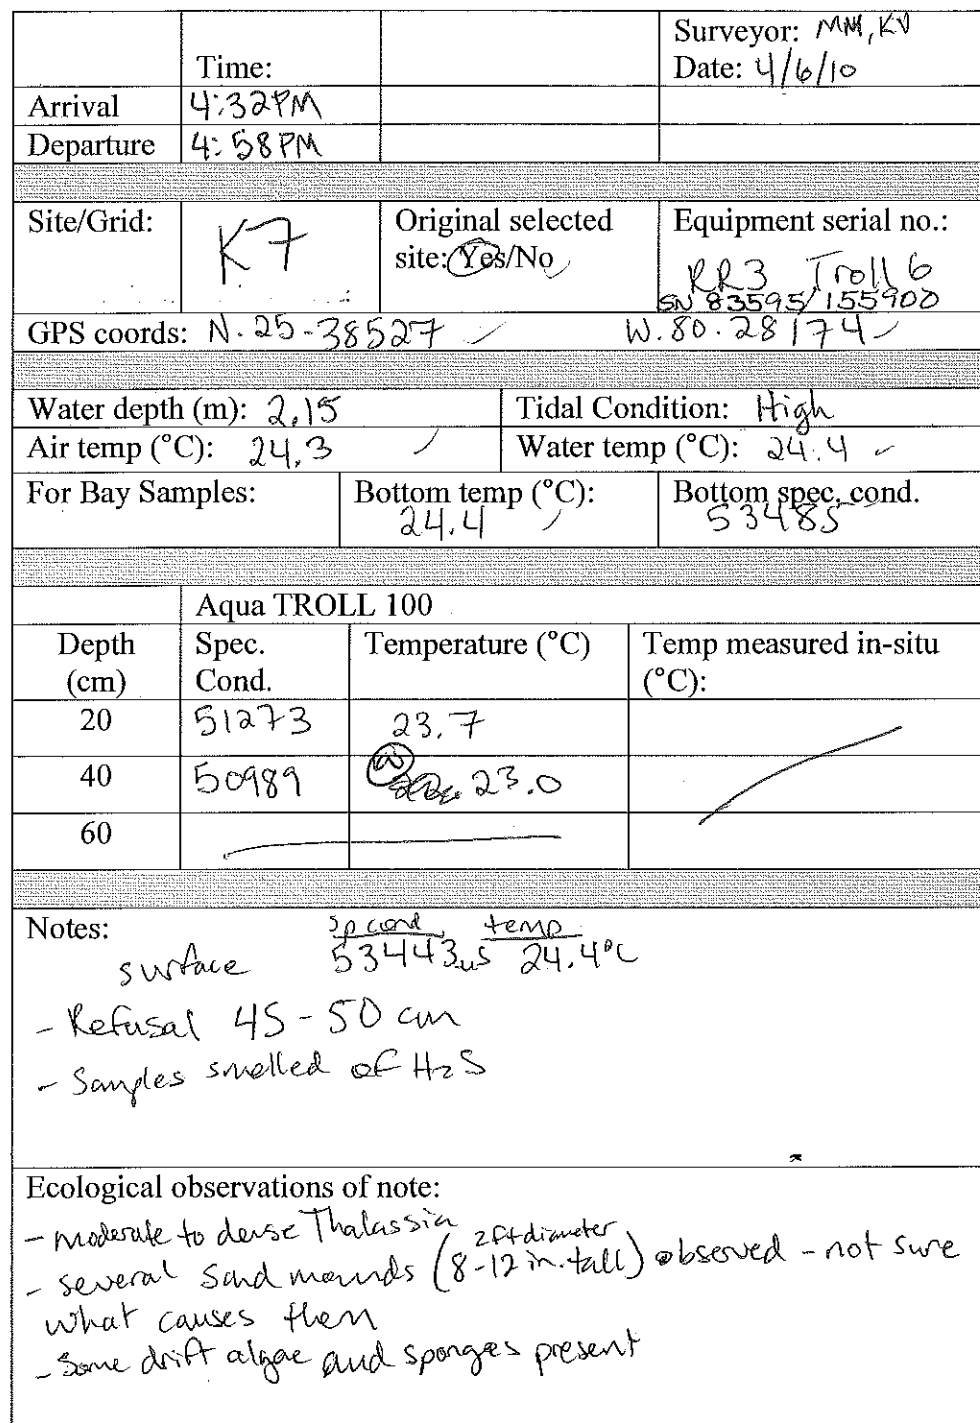 Surveyor: MM, KV
Time: Date: 4/6/10
Arrival 4:32PM
Departure 4:58PM
Site/Grid: K7 Original selected site: Yes/No Equipment serial no.:
RR3 Troll 6
SN 83595/155900
GPS coords: N. 25-38527 W. 80.28174
Water depth (m): 2.15 Tidal Condition: High
Air temp (°C): 24.3 Water temp (°C): 24.4
For Bay Samples: Bottom temp (°C): 24.4 Bottom spec. cond. 53485
Aqua TROLL 100
Depth (cm) Spec. Cond. Temperature (°C) Temp measured in-situ (°C):
20 51273 23.7
40 50989 23.0
60
Notes: sp cond temp
surface 53443us 24.4°C
- Refusal 45-50 cm
- Samples smelled of H2S
Ecological observations of note:
- moderate to dense Thalassia
- several sand mounds (2ft diameter 8-12 in. tall) observed - not sure
what causes them
- Some drift algae and sponges present